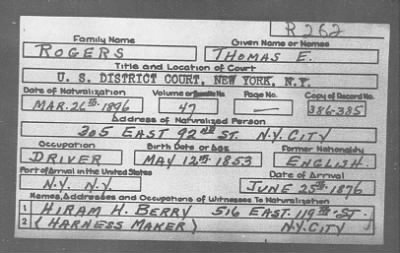 R262
Family Name Given Name or Names
ROGERS THOMAS E.
Title and Location of Court
U. S. DISTRICT COURT, NEW YORK, N.Y.
Date of Naturalization Volume or Bundle No. Page No. Copy of Record No.
MAR. 26TH 1896 47 — 386-385
Address of Naturalized Person
305 EAST 92ND ST. N.Y. CITY
Occupation Birth Date or Age Former Nationality
DRIVER MAY 12TH 1853 ENGLISH
Port of Arrival in the United States Date of Arrival
N.Y. N.Y. JUNE 25TH 1876
Names, Addresses and Occupations of Witnesses To Naturalization
1 HIRAM H. BERRY 516 EAST. 119TH ST.
2 (HARNESS MAKER) N.Y. CITY